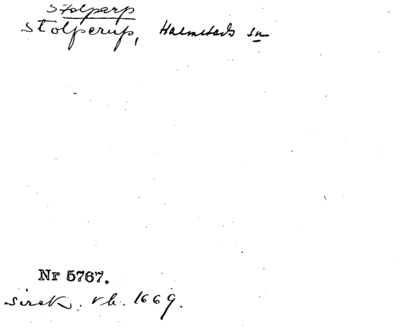 Stolparp
Stolperup, Halmstads sn
Nr 5767.
vb. 1669.